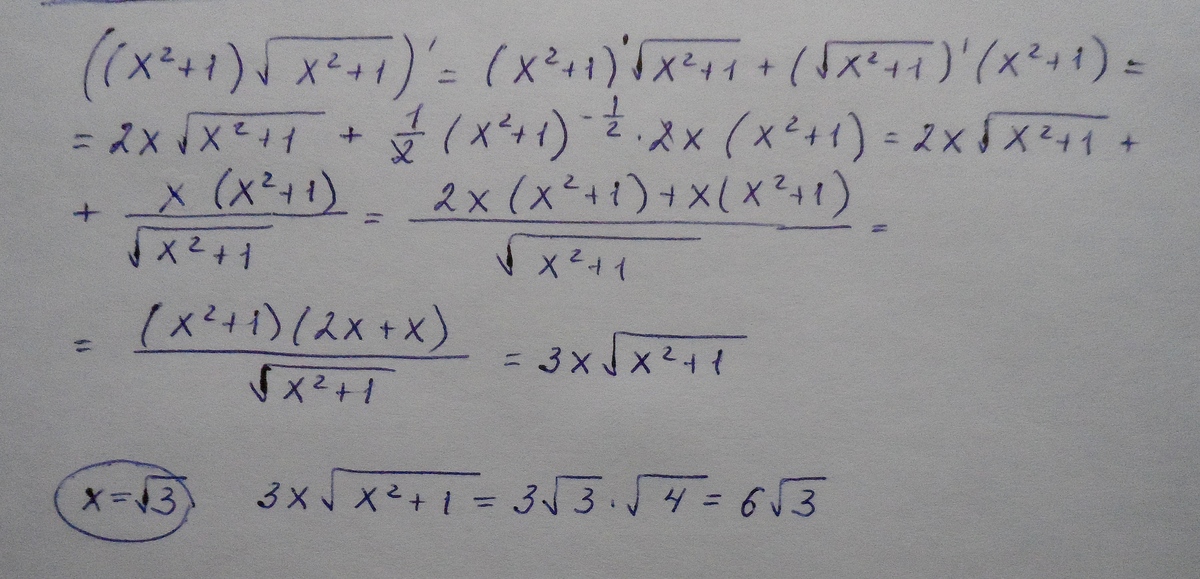 ((x²+1)√(x²+1))' = (x²+1)'√(x²+1) + (√(x²+1))'(x²+1) =
= 2x√(x²+1) + 1/2 (x²+1)^(-1/2) · 2x (x²+1) = 2x√(x²+1) +
+ x(x²+1)/√(x²+1) = (2x(x²+1)+x(x²+1))/√(x²+1) =
= (x²+1)(2x+x)/√(x²+1) = 3x√(x²+1)
x=√3. 3x√(x²+1) = 3√3 · √4 = 6√3